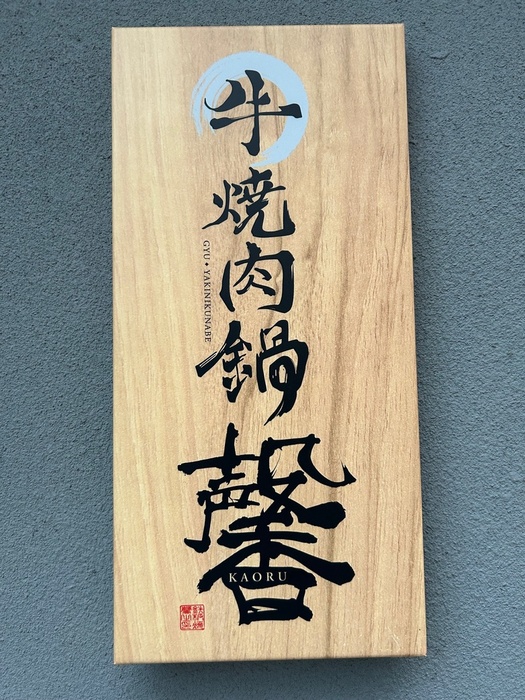 牛焼肉鍋
GYU✦YAKINIKUNABE
馨
KAORU